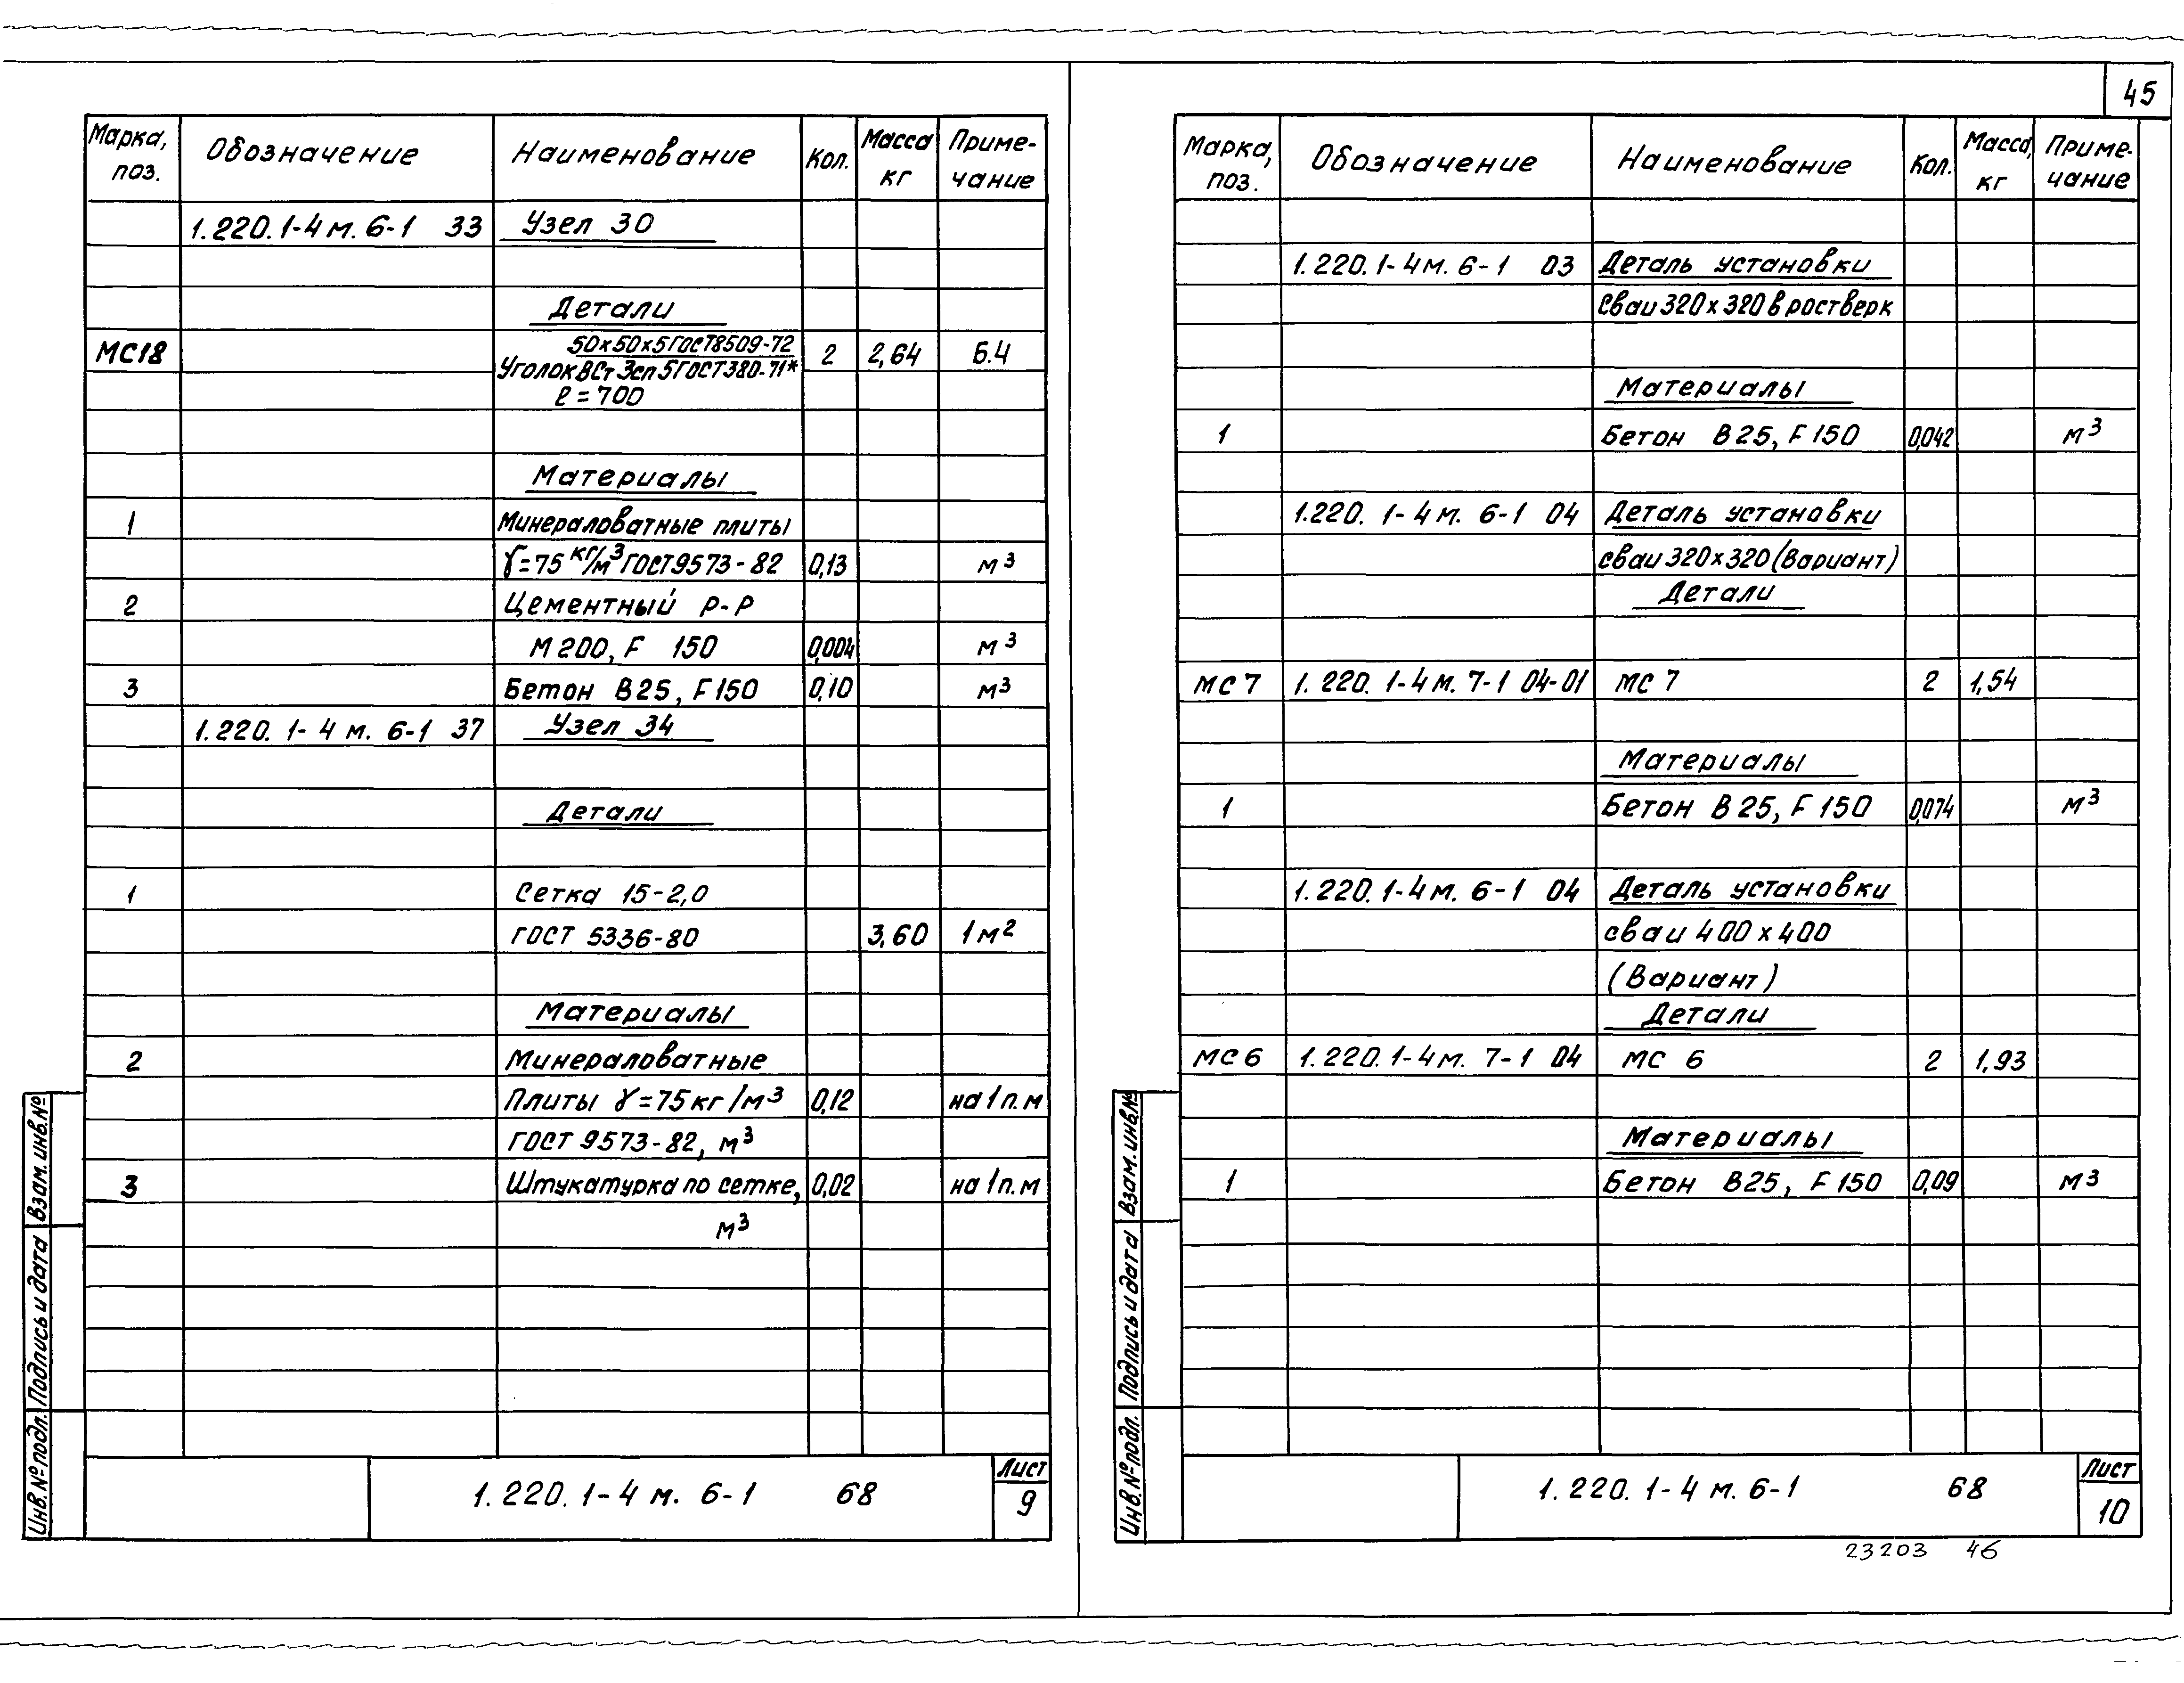 45
Марка, поз. Обозначение Наименование Кол. Масса кг Приме-чание
1.220.1-4м.6-1 33 Узел 30
Детали
МС18 50х50х5 ГОСТ 8509-72 2 2,64 Б.Ч
Уголок ВСт 3сп5 ГОСТ 380-71*
ℓ=700
Материалы
1 Минераловатные плиты
γ=75 кг/м³ ГОСТ 9573-82 0,13 м³
2 Цементный р-р
М200, F 150 0,004 м³
3 Бетон В25, F150 0,10 м³
1.220.1-4м.6-1 37 Узел 34
Детали
1 Сетка 15-2,0
ГОСТ 5336-80 3,60 1м²
Материалы
2 Минераловатные
плиты γ=75кг/м³ 0,12 на 1п.м
ГОСТ 9573-82, м³
3 Штукатурка по сетке, 0,02 на 1п.м
м³
Взам. инв.№
Подпись и дата
Инв.№ подл.
1.220.1-4м.6-1 68
Лист
9
Марка, поз. Обозначение Наименование Кол. Масса, кг Приме-чание
1.220.1-4м.6-1 03 Деталь установки
сваи 320х320 в ростверк
Материалы
1 Бетон В25, F150 0,042 м³
1.220.1-4м.6-1 04 Деталь установки
сваи 320х320 (вариант)
Детали
МС7 1.220.1-4м.7-1 04-01 МС 7 2 1,54
Материалы
1 Бетон В25, F150 0,074 м³
1.220.1-4м.6-1 04 Деталь установки
сваи 400х400
(Вариант)
Детали
МС6 1.220.1-4м.7-1 04 МС 6 2 1,93
Материалы
1 Бетон В25, F150 0,09 м³
Взам. инв.№
Подпись и дата
Инв.№ подл.
1.220.1-4м.6-1 68
Лист
10
23203 46